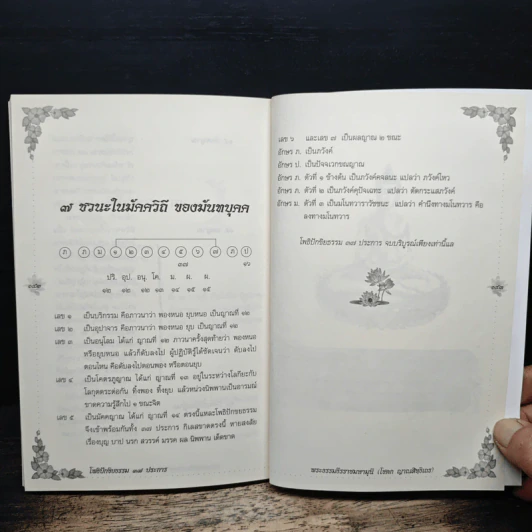 ๗ ชวนะในมัคควิถี ของมันทบุคคล
ภ ภ ม ๑ ๒ ๓ ๔ ๕ ๖ ๗ ภ ป
๓๗
ปริ. อุป. อนุ. โค. ม. ผ. ผ.
๑๒ ๑๒ ๑๒ ๑๓ ๑๔ ๑๕ ๑๕
เลข ๑ เป็นบริกรรม คือภาวนาว่า พองหนอ ยุบหนอ เป็นญาณที่ ๑๒
เลข ๒ เป็นอุปาจาร คือภาวนาว่า พองหนอ ยุบ เป็นญาณที่ ๑๒
เลข ๓ เป็นอนุโลม ได้แก่ ญาณที่ ๑๒ ภาวนาครั้งสุดท้ายว่า พองหนอ
หรือยุบหนอ แล้วก็ดับลงไป ผู้ปฏิบัติรู้ได้ชัดเจนว่า ดับลงไป
ตอนไหน คือดับลงไปตอนพอง หรือตอนยุบ
เลข ๔ เป็นโคตรภูญาณ ได้แก่ ญาณที่ ๑๓ อยู่ในระหว่างโลกียะกับ
โลกุตตระต่อกัน ทิ้งพอง ทิ้งยุบ แล้วหน่วงนิพพานเป็นอารมณ์
ขาดความรู้สึกไป ๑ ขณะจิต
เลข ๕ เป็นมัคคญาณ ได้แก่ ญาณที่ ๑๔ ตรงนี้แหละโพธิปักขิยธรรม
จึงเข้าพร้อมกันทั้ง ๓๗ ประการ กิเลสขาดตรงนี้ หายสงสัย
เรื่องบุญ บาป นรก สวรรค์ มรรค ผล นิพพาน เด็ดขาด
โพธิปักขิยธรรม ๓๗ ประการ
เลข ๖ และเลข ๗ เป็นผลญาณ ๒ ขณะ
อักษร ภ. เป็นภวังค์
อักษร ป. เป็นปัจจเวกขณญาณ
อักษร ภ. ตัวที่ ๑ ข้างต้น เป็นภวังค์คจลนะ แปลว่า ภวังค์ไหว
อักษร ภ. ตัวที่ ๒ เป็นภวังค์คุปัจเฉทะ แปลว่า ตัดกระแสภวังค์
อักษร ม. ตัวที่ ๓ เป็นมโนทวาราวัชชนะ แปลว่า คำนึงทางมโนทวาร คือ
ลงทางมโนทวาร
โพธิปักขิยธรรม ๓๗ ประการ จบบริบูรณ์เพียงเท่านี้แล
พระธรรมธีรราชมหามุนี (โชดก ญาณสิทฺธิเถร)